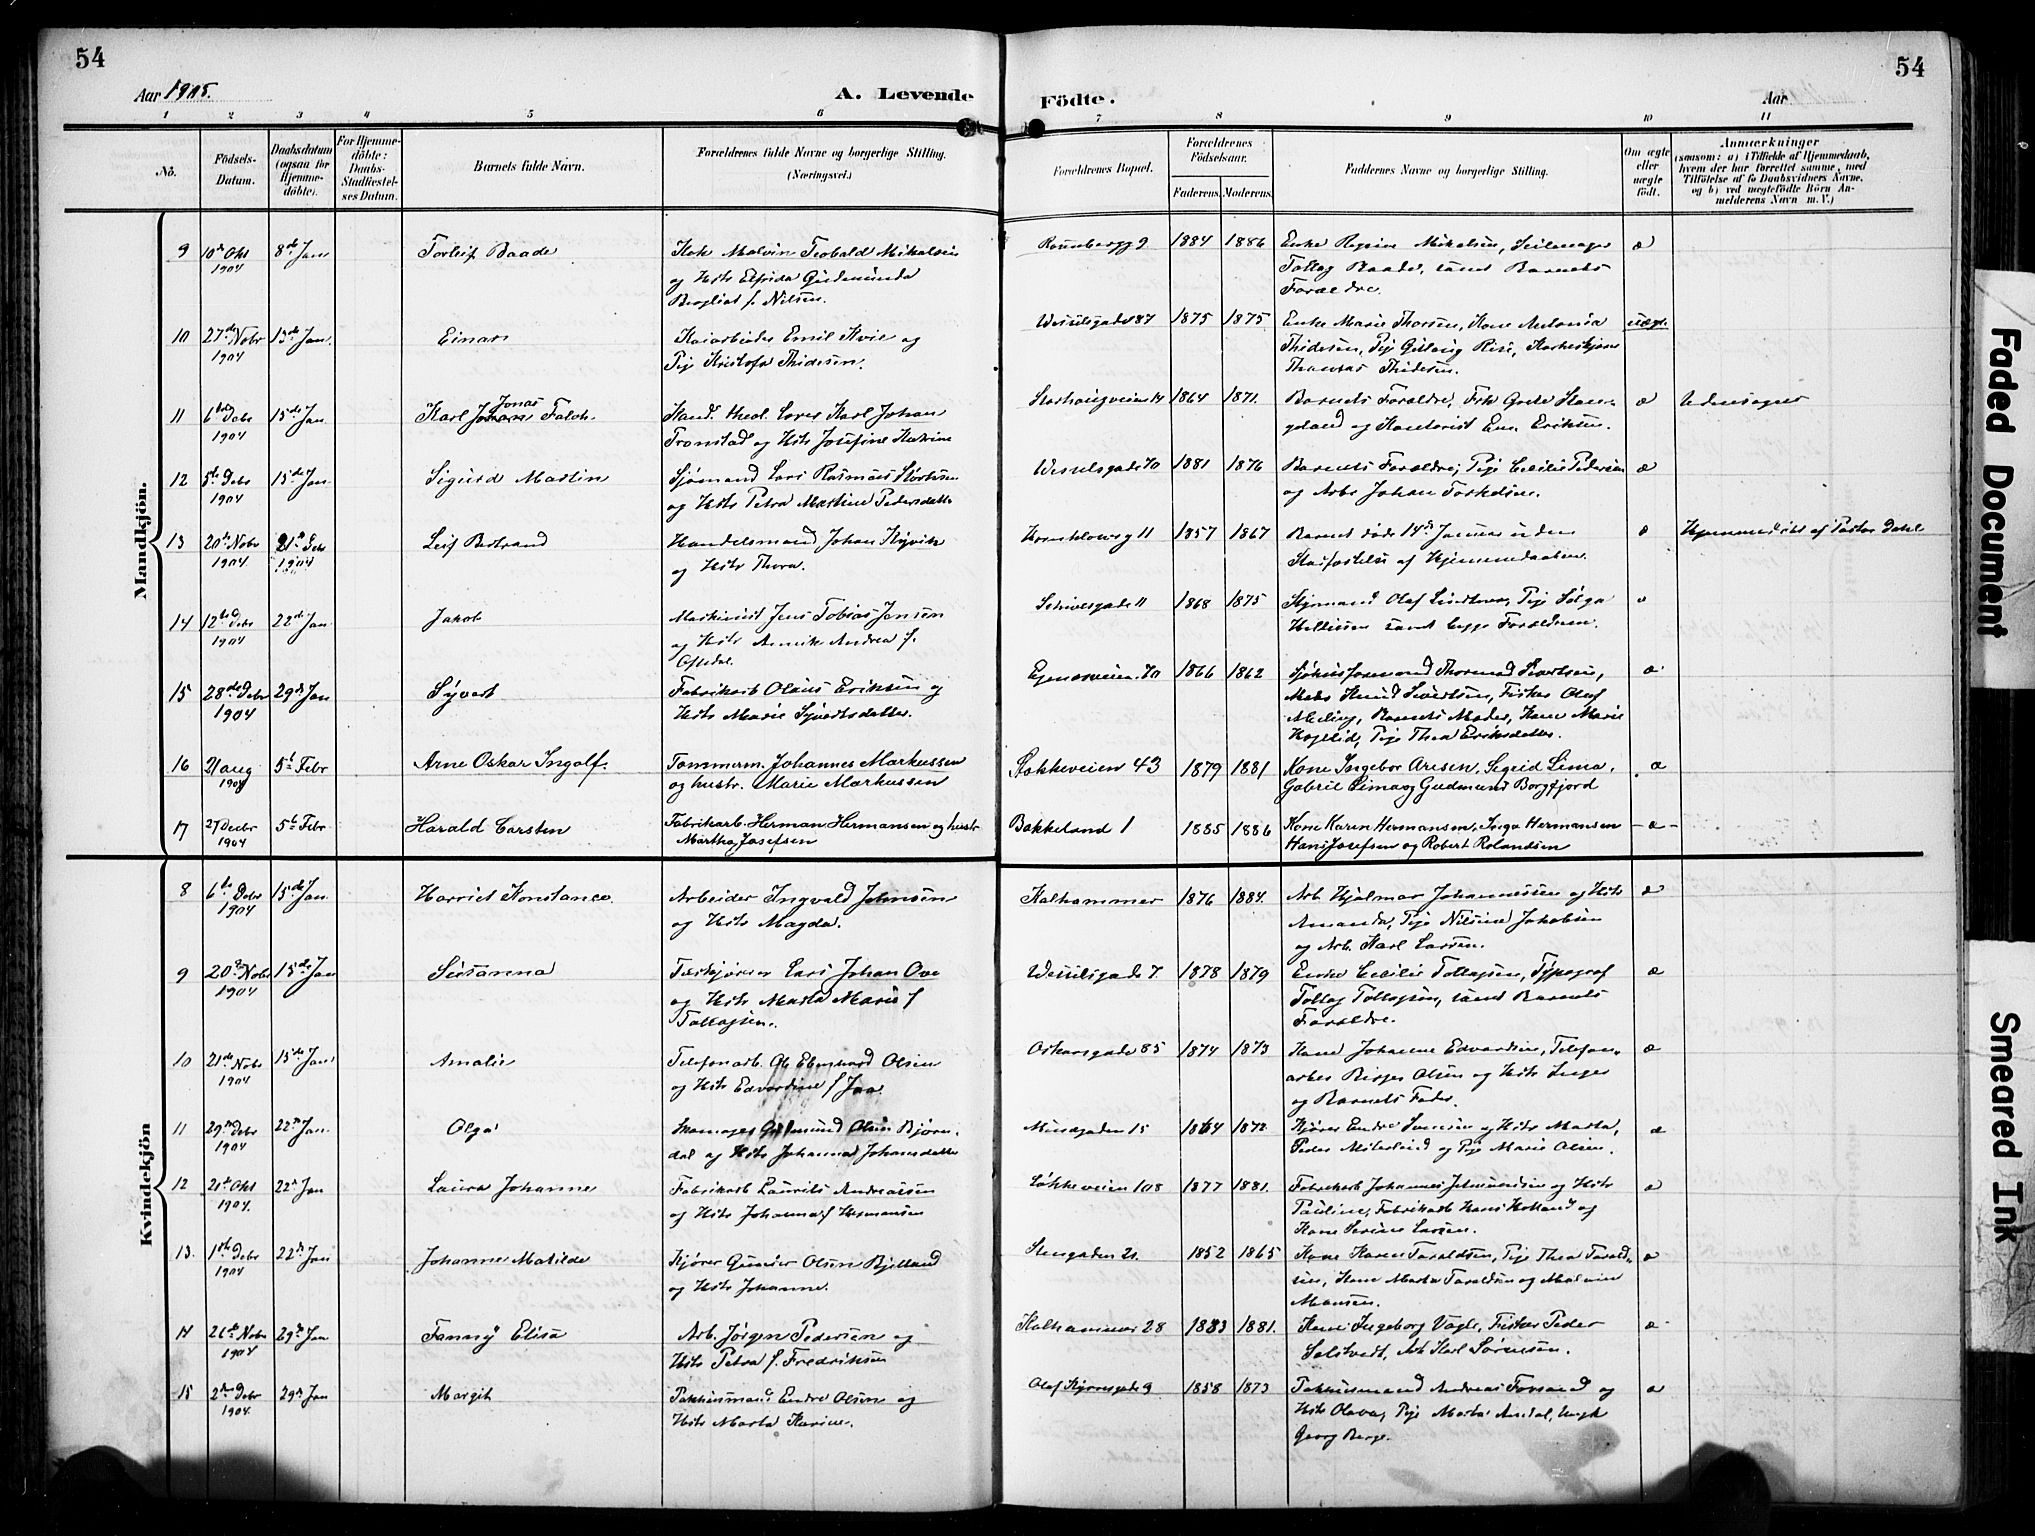 54
54
Aar 1905.
A. Levende
Födte.
Aar
1 2 3 4 5 6 7 8 9 10 11
No.
Födsels-Datum.
Daabsdatum (ogsaa for Hjemmedöbte).
For Hjemmedöbte: Daabs-Stadfestelses Datum.
Barnets fulde Navn.
Forældrenes fulde Navne og borgerlige Stilling. (Næringsvei.)
Forældrenes Bopæl.
Forældrenes Födselsaar.
Faderens. Moderens.
Faddernes Navne og borgerlige Stilling.
Om ægte eller uægte födt.
Anmærkninger
(saasom: a) i Tilfælde af Hjemmedaab, hvem der har forrettet samme, med Tilföielse af to Daabsvidners Navne, og b) ved uægtefödte Börn Anmelderens Navn m. V.)
Mandkjön.
9 10de Okt 1904 8de Jan Torleif Baade
Kok Malvin Teobald Mikalsen
og Hstr Elfrida Gudmunda
Bergliot f. Nilsen.
9 1884 1886 Enke Regine Mikalsen, Seilmager
Tollag Baade, samt Barnets
Forældre.
æ
10 27de Nobr 1904 13de Jan. Einar
Kaiarbeider Emil Kvie og
Pige Kristofa Thidesen.
Wesselsgade 87 1875 1875 Enke Marie Thorsen, Kone Antonia
Thidesen, Pige Gitlaug Rise,
Thomas Thidesen.
uægte
11 6te Debr 1904 15de Jan Karl Johan Jonas Falch
Kand. theol. Lars Karl Johan
Tronstad og Hstr Josefine Katrine
Storhaugveien 14 1864 1871. Barnets Forældre, Frk Grete Haugland
og Kontorist Even Eriksen.
æ Udensogns
12 5te Debr 1904 15de Jan Sigurd Martin
Sjømand Lars Rasmus
og Hstr Petra Martine Pedersdatter
Wesselsgade 70 1881 1876 Barnets Forældre, Pige Cecilie Pedersen
og Arbr Johan Torkelsen.
æ
13 20de Nobr 1904 21de Debr 1904 Leif Bertrand
Handelsmand Johan Kyvik
og Hstr Thora.
11 1857 1867 Barnet døde 14de Januar uden
Stadfæstelse af Hjemmedaaben.
Hjemmedøbt af Pastor Dahl
14 12te Debr 1904 22de Jan Jakob
Maskinist Jens Tobias Jensen
og Hstr Annik Andrea f.
Oftedal.
11 1868 1875 Styrmand Olaf Lindtner, Pige Solga
Hellisen samt begge Forældrene.
15 28de Debr 1904 29de Jan Syvert
Fabrikarb Olaus Eriksen og
Hstr Marie Syvertsdatter.
Egenesveien 70 1866 1862 Sjøhusformand Thormod Sivertsen,
Knud Sivertsen, Fisker Olaf
Meling, Barnets Moder, Kone Marie
Pige Thea Eriksdatter.
æ
16 21 aug 1904 5te Febr Arne Oskar Ingolf.
Tømmerm. Johannes Markussen
og hustr. Marie Markussen
Stokkeveien 43 1879 1881 Kone Ingebor Aresen, Sigrid Lima,
Gabriel Lima og Gudmund Borgfjord
æ
17 27 Decbr 1904 5te Febr Harald Carsten
Fabrikarb. Herman Hermansen og hustr
Martha Josefsen
Bakkeland 1 1885 1886 Kone Karen Hermansen, Inga Hermansen
Hans Josefsen og Robert Rolandsen
- æ -
Kvindekjön
8 6te Debr 1904 15de Jan Harriet Konstance
Arbeider Ingvald Johnsen
og Hstr Magda.
Kalhammer 1876 1884. Arb Hjalmar Johannessen og Hstr
Amanda, Pige Nilsine Jakobsen
og Arb. Karl Larsen.
æ
9 20de Nobr 1904 15de Jan Susanna
Lars Johan Ove
og Hstr Marta Marie f
Tollagsen.
Wesselsgade 7 1878 1879 Enke Cecilie Tollagsen, Typograf
Tollag Tollagsen, samt Barnets
Forældre.
æ
10 21de Nobr 1904 15de Jan Amalie
Telefonarb. Ole Eberhard Olsen
og Hstr Edvardine f Jaa
Oskarsgade 85 1874 1873 Kone Johanne Edvardsen, Telefonarber
Birger Olsen og Hstr Inger
og Barnets Fader.
æ
11 29de Debr 1904 22de Jan. Olga
Skomager Gudmund Olsen Bjørndal
og Hstr Johanna Johansdatter
Misjegaden 15 1864 1872. Kjører Endre Svensen og Hstr Marta,
Peder Misterlind og Pige Marie Olsen.
æ
12 21de Okt 1904. 22de Jan Laura Johanne
Fabrikarb Laurits Andreassen
og Hstr Johanna f Hermansen
Løkkeveien 108 1877 1881. Fabrikarb Johannes og Hstr
Pauline, Fabrikarb Hans Holland og
Kone Serine Larsen.
æ
13. 1ste Debr 1904 22de Jan Johanne Matilde
Kjører Gunder Olsen Bjelland
og Hstr Johanne.
Stengaden 21. 1852 1865 Kone Karen Taraldsen, Pige Thea Taraldsen,
Kone Marta Taraldsen og Malvin
Monsen.
æ
14 26de Nobr 1904 29de Jan Fanny Elisa
Arb. Jørgen Pedersen og
Hstr Petra f. Fredriksen
Kalhammer 28 1883 1881. Kone Ingeborg Vagle, Fisker Peder
Solstvedt, Arb Karl Sørensen.
æ
15 2den Debr 1904. 29de Jan Margit
Pakhusmand Endre Olsen og
Hstr Marta Karine.
Olaf Kyrresgade 9 1858 1873 Pakhusmand Andreas Forsand og
Hstr Olava, Pige Marta Årdal, Ungk
Georg Berge.
æ
Faded Document
Smeared Ink